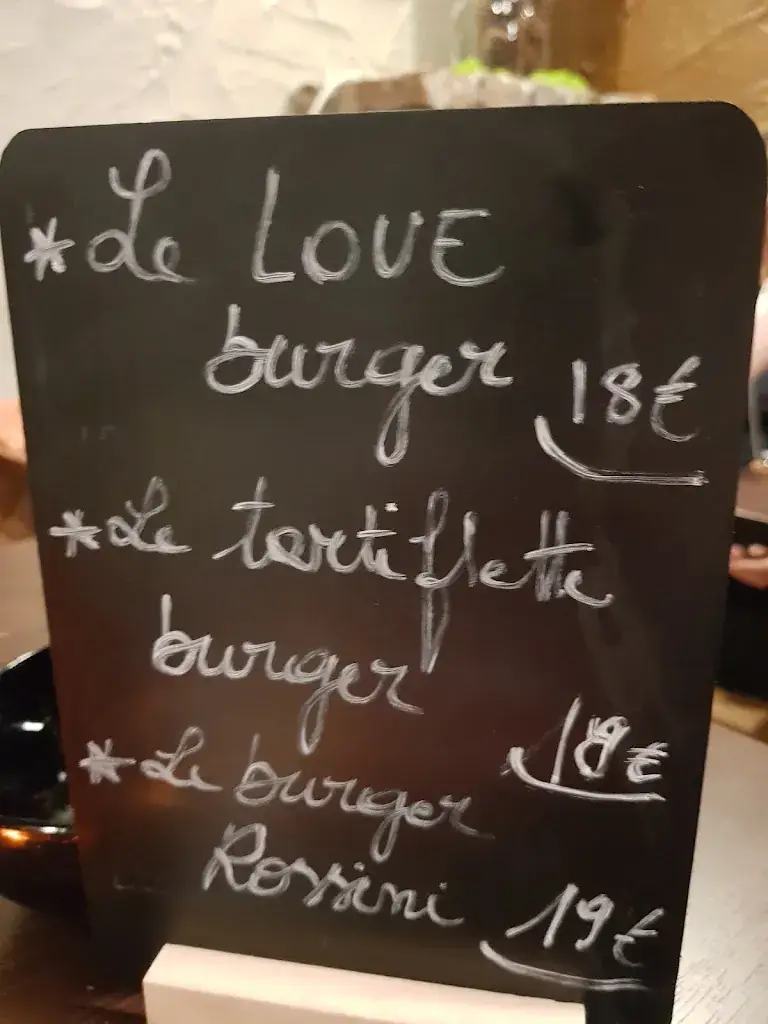 * Le LOVE
burger 18€
* Le tartiflette
burger
18€
* Le burger
Rossini 19€